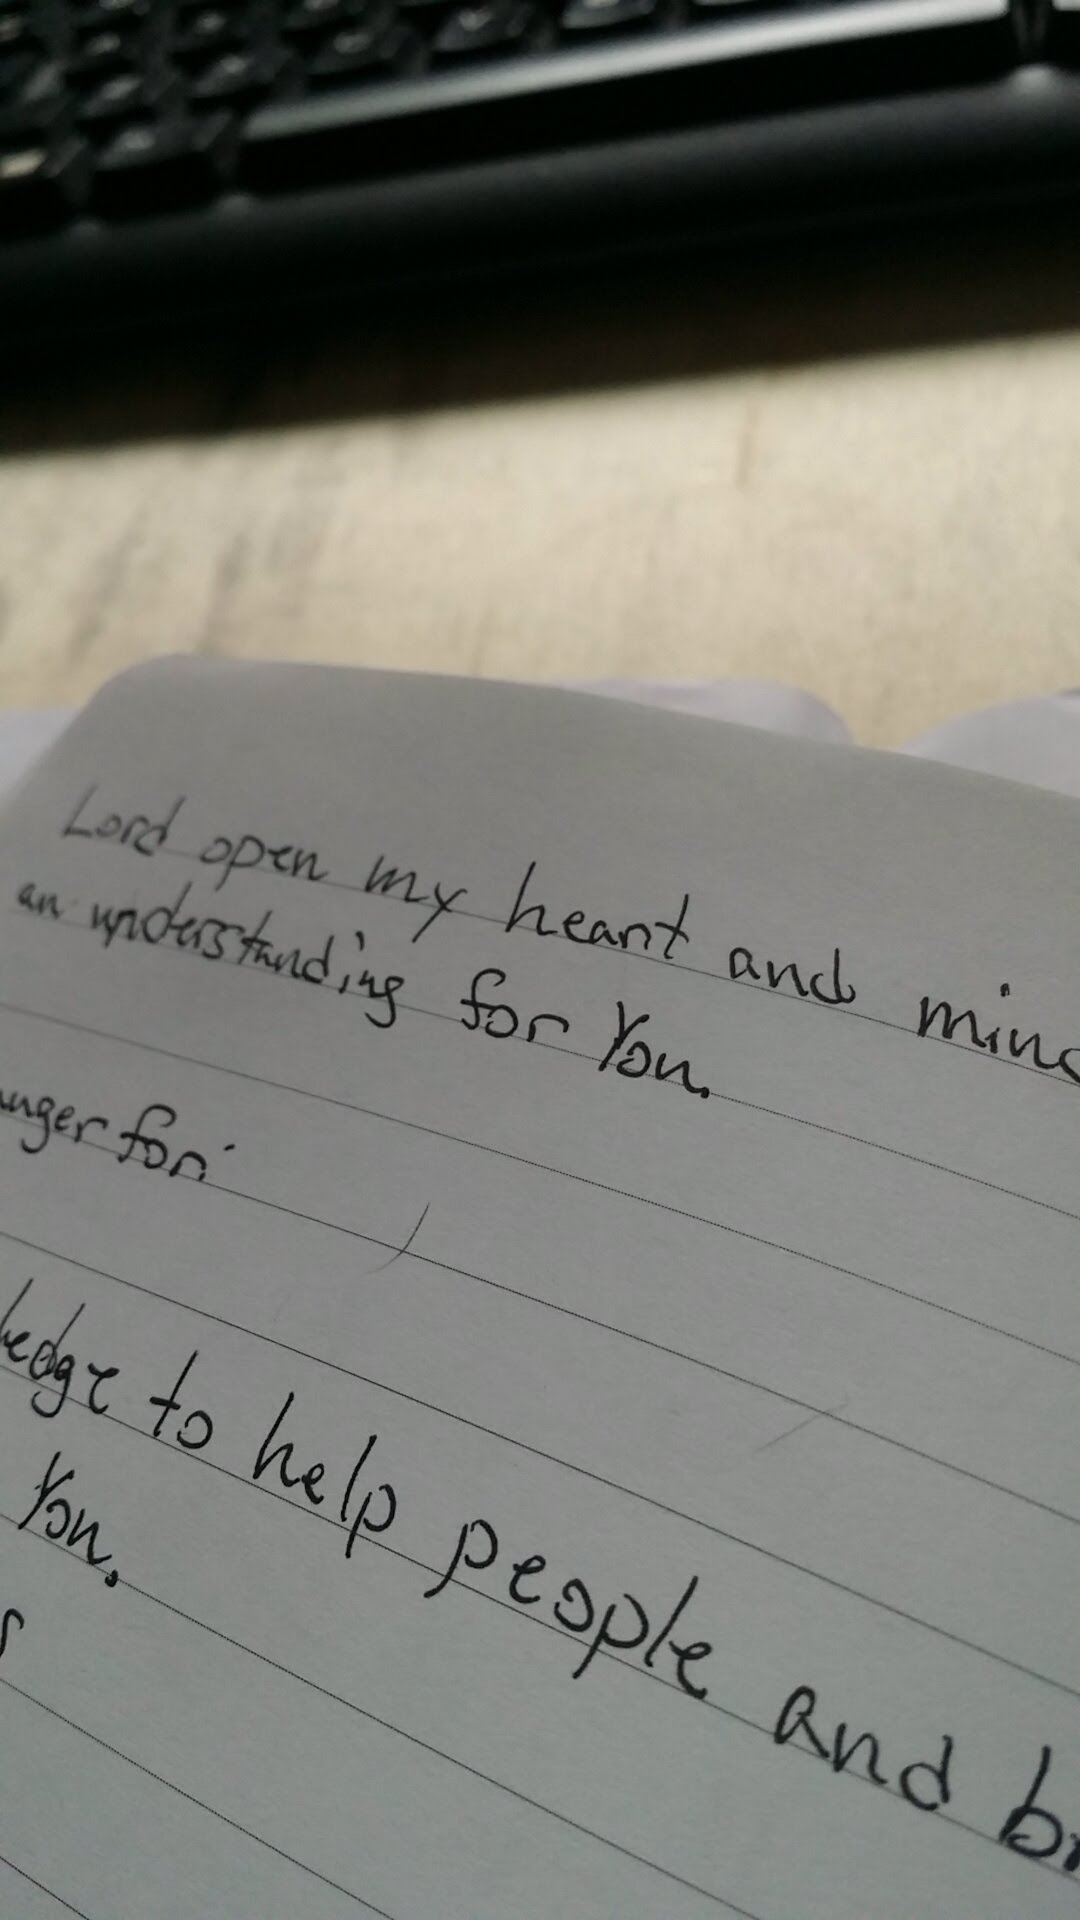 Lord open my heart and mind
an understanding for You.
unger for
ledge to help people and br
You.
s